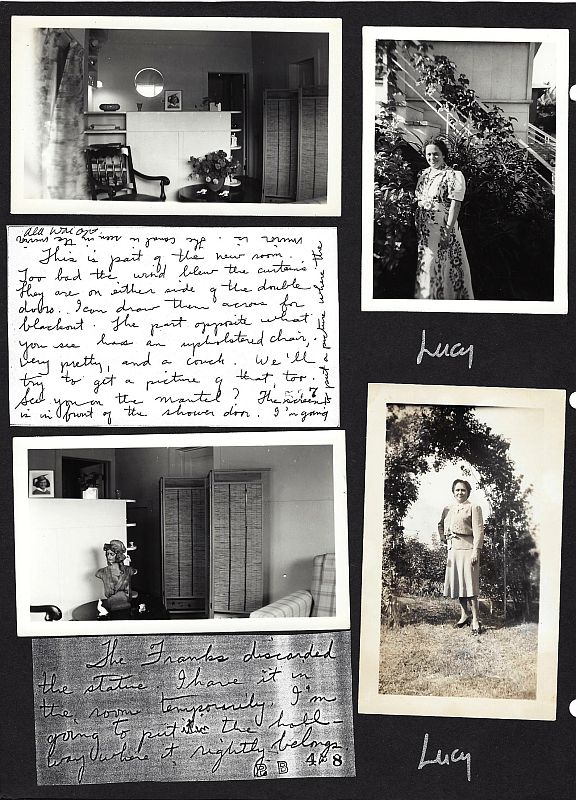 This is part of the new room.
Too bad the wind blew the curtains
They are on either side of the double
doors. I can draw them across for
blackout. The part opposite what
you see has an upholstered chair,
very pretty, and a couch. We'll
try to get a picture of that, too.
See you on the mantel? The screen
is in front of the shower door. I'm going
Lucy
The Franks discarded
the statue. I have it in
the room temporarily. I'm
going to put it in the hall-
way where it rightly belongs
B 48
Lucy